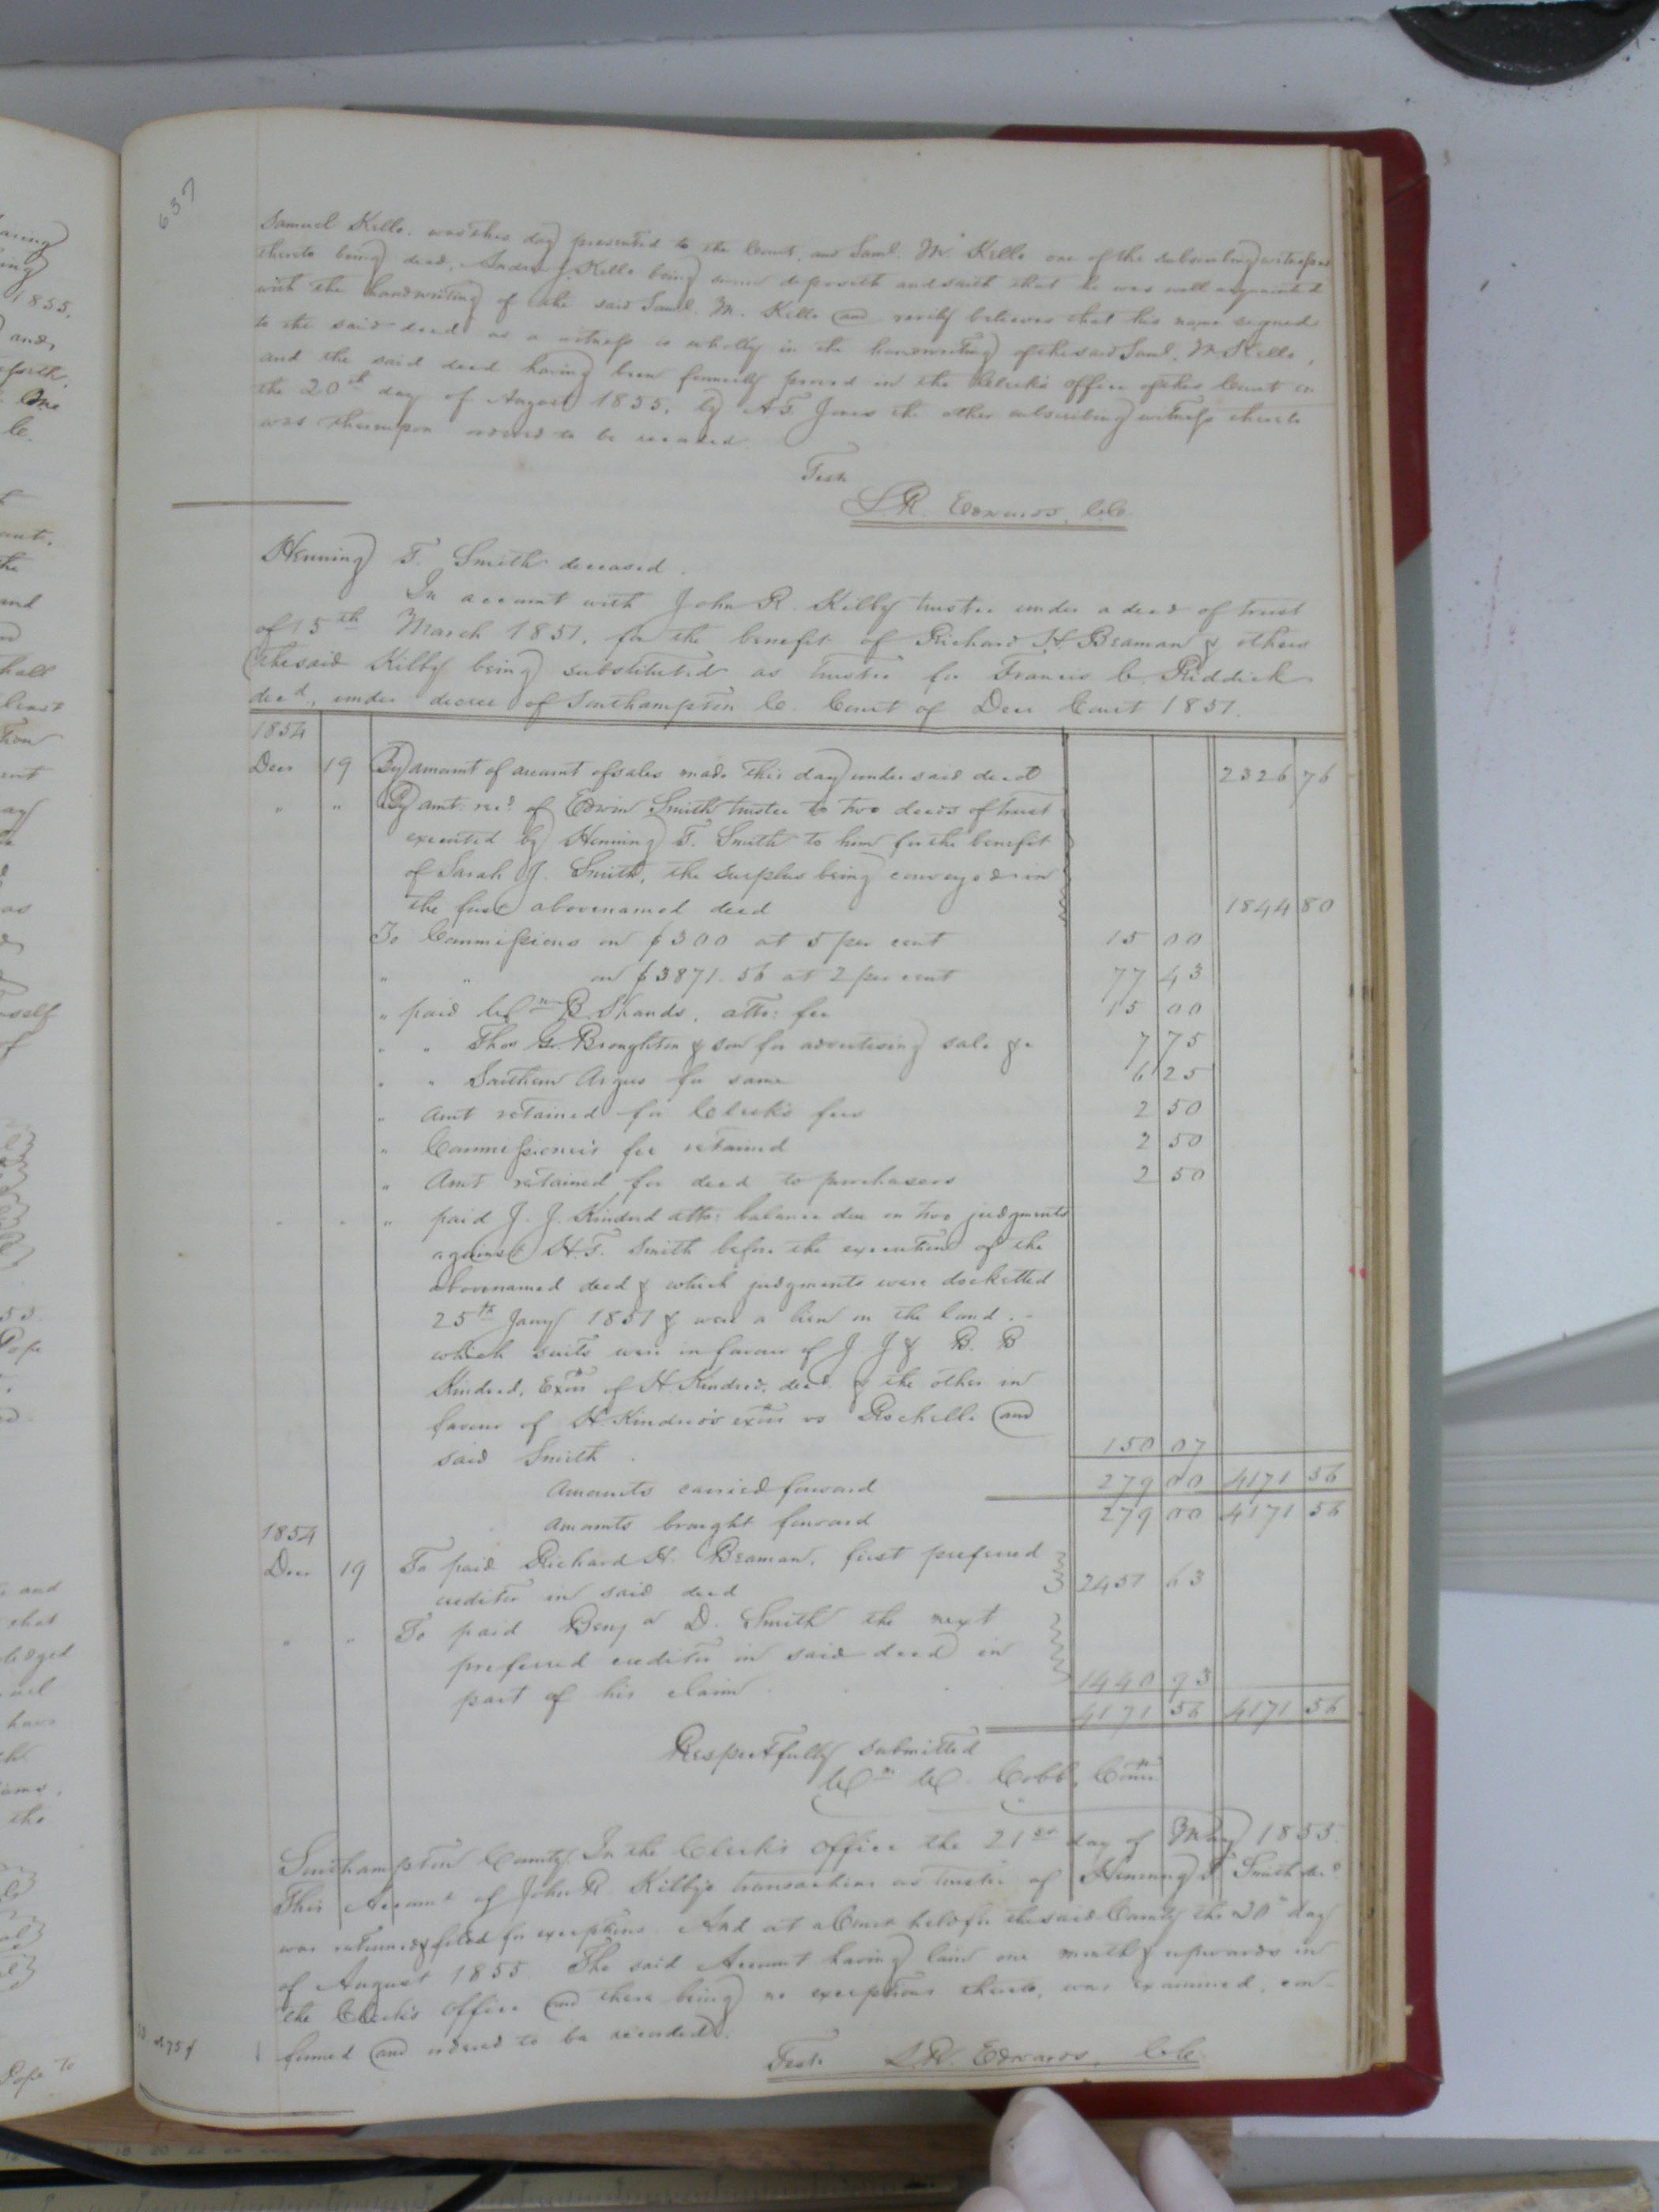 637
Samuel Kello. was this day presented to the Court, and Saml. M. Kello one of the subscribing witnesses
thereto being dead, Andrew J. Kello being sworn deposeth and saith that he was well acquainted
with the handwriting of the said Saml. M. Kello and verily believes that his name signed
to the said deed as a witness is wholly in the handwriting of the said Saml. M. Kello,
and the said deed having been formerly proved in the Clerk's office of this Court on
the 20th day of August 1855, by A. T. Jones the other subscribing witness thereto
was thereupon ordered to be recorded.
Teste
L. R. Edwards, C.C.
Henning T. Smith deceased.
In account with John R. Kilby trustee under a deed of trust
of 15th March 1851, for the benefit of Richard H. Beaman & others
(the said Kilby being substituted as trustee for Francis C. Riddick
decd, under decree of Southampton C. Court of Decr Court 1851.
1854
Decr 19 By amount of account of sales made this day under said deed 2326 76
" " By amt: recd. of Edwin Smith trustee to two deeds of trust
executed by Henning T. Smith to him for the benefit
of Sarah J. Smith, the surplus being conveyed in
the first abovenamed deed 1844 80
To Commissions on $300 at 5 per cent 15 00
" " on $3871.56 at 2 per cent 77 43
" paid Wm B. Shands, atto: fee 15 00
" " Thos G. Broughton & son for advertising sale &c 7 75
" " Southern Argus for same 6 25
" Amt retained for Clerk's fees 2 50
" Commissioner's fee retained 2 50
" Amt retained for deed to purchasers 2 50
" " " paid J. J. Kindred atto: balance due on two judgments
against H. T. Smith before the execution of the
abovenamed deed & which judgments were docketted
25th Jany 1851 & were a lien on the land. -
which suits were in favour of J. J & B. B
Kindred, Exors of H. Kindred, decd. & the other in
favour of H. Kindred's exors vs Rochelle and
said Smith. 150 07
Amounts carried forward 279 00 4171 56
Amounts brought forward 279 00 4171 56
1854
Decr 19 To paid Richard H. Beaman, first preferred
creditor in said deed 2451 63
" " To paid Benja D. Smith the next
preferred creditor in said deed in
part of his claim. 1440 93
4171 56 4171 56
Respectfully submitted
Wm W. Cobb, Comr.
Southampton County. In the Clerk's Office the 21st day of May 1855.
This Account of John R. Kilby's transactions as trustee of Henning T. Smith decd
was returned & filed for exceptions. And at a Court held for the said County the 20th day
of August 1855. The said Account having lain one month & upwards in
the Clerk's Office and there being no exceptions thereto, was examined, con-
firmed and ordered to be recorded.
Teste L. R. Edwards, C.C.